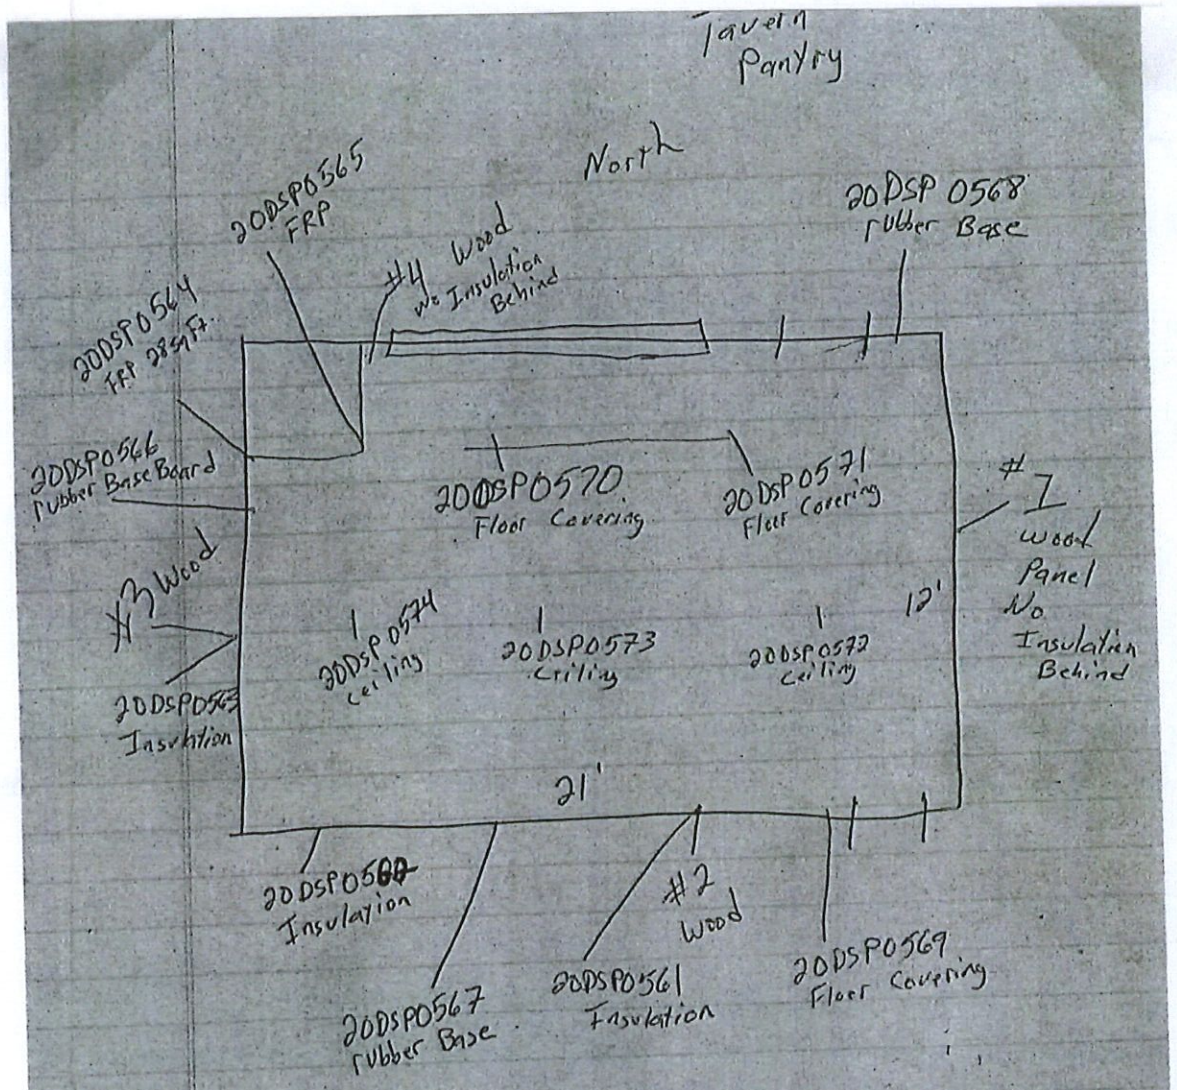 Tavern
Pantry
North
20DSP0565
FRP
20DSP0568
rubber Base
#4 Wood
No Insulation
Behind
20DSP0564
FRP 28sqFt.
20DSP0566
rubber Base Board
20DSP0570
Floor Covering
20DSP0571
Floor Covering
#1
wood
Panel
No
Insulation
Behind
#3 Wood
12'
20DSP0574
Ceiling
20DSP0573
Ceiling
20DSP0572
Ceiling
20DSP0563
Insulation
21'
Insulation
#2
Wood
20DSP0567
rubber Base
20DSP0561
Insulation
20DSP0569
Floor Covering